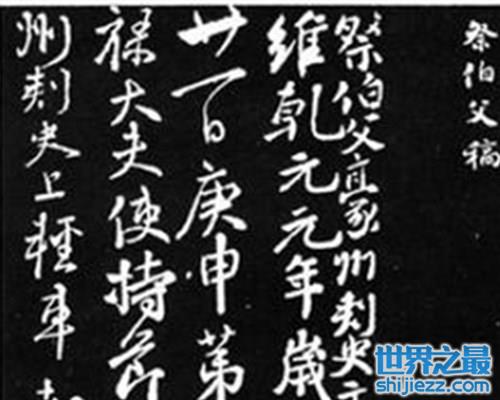 祭伯父稿
祭伯父豪州刺史文
維乾元元年歲
廿一日庚申第
祿大夫使持節
州刺史上輕車
世界之最
shijiezz.com